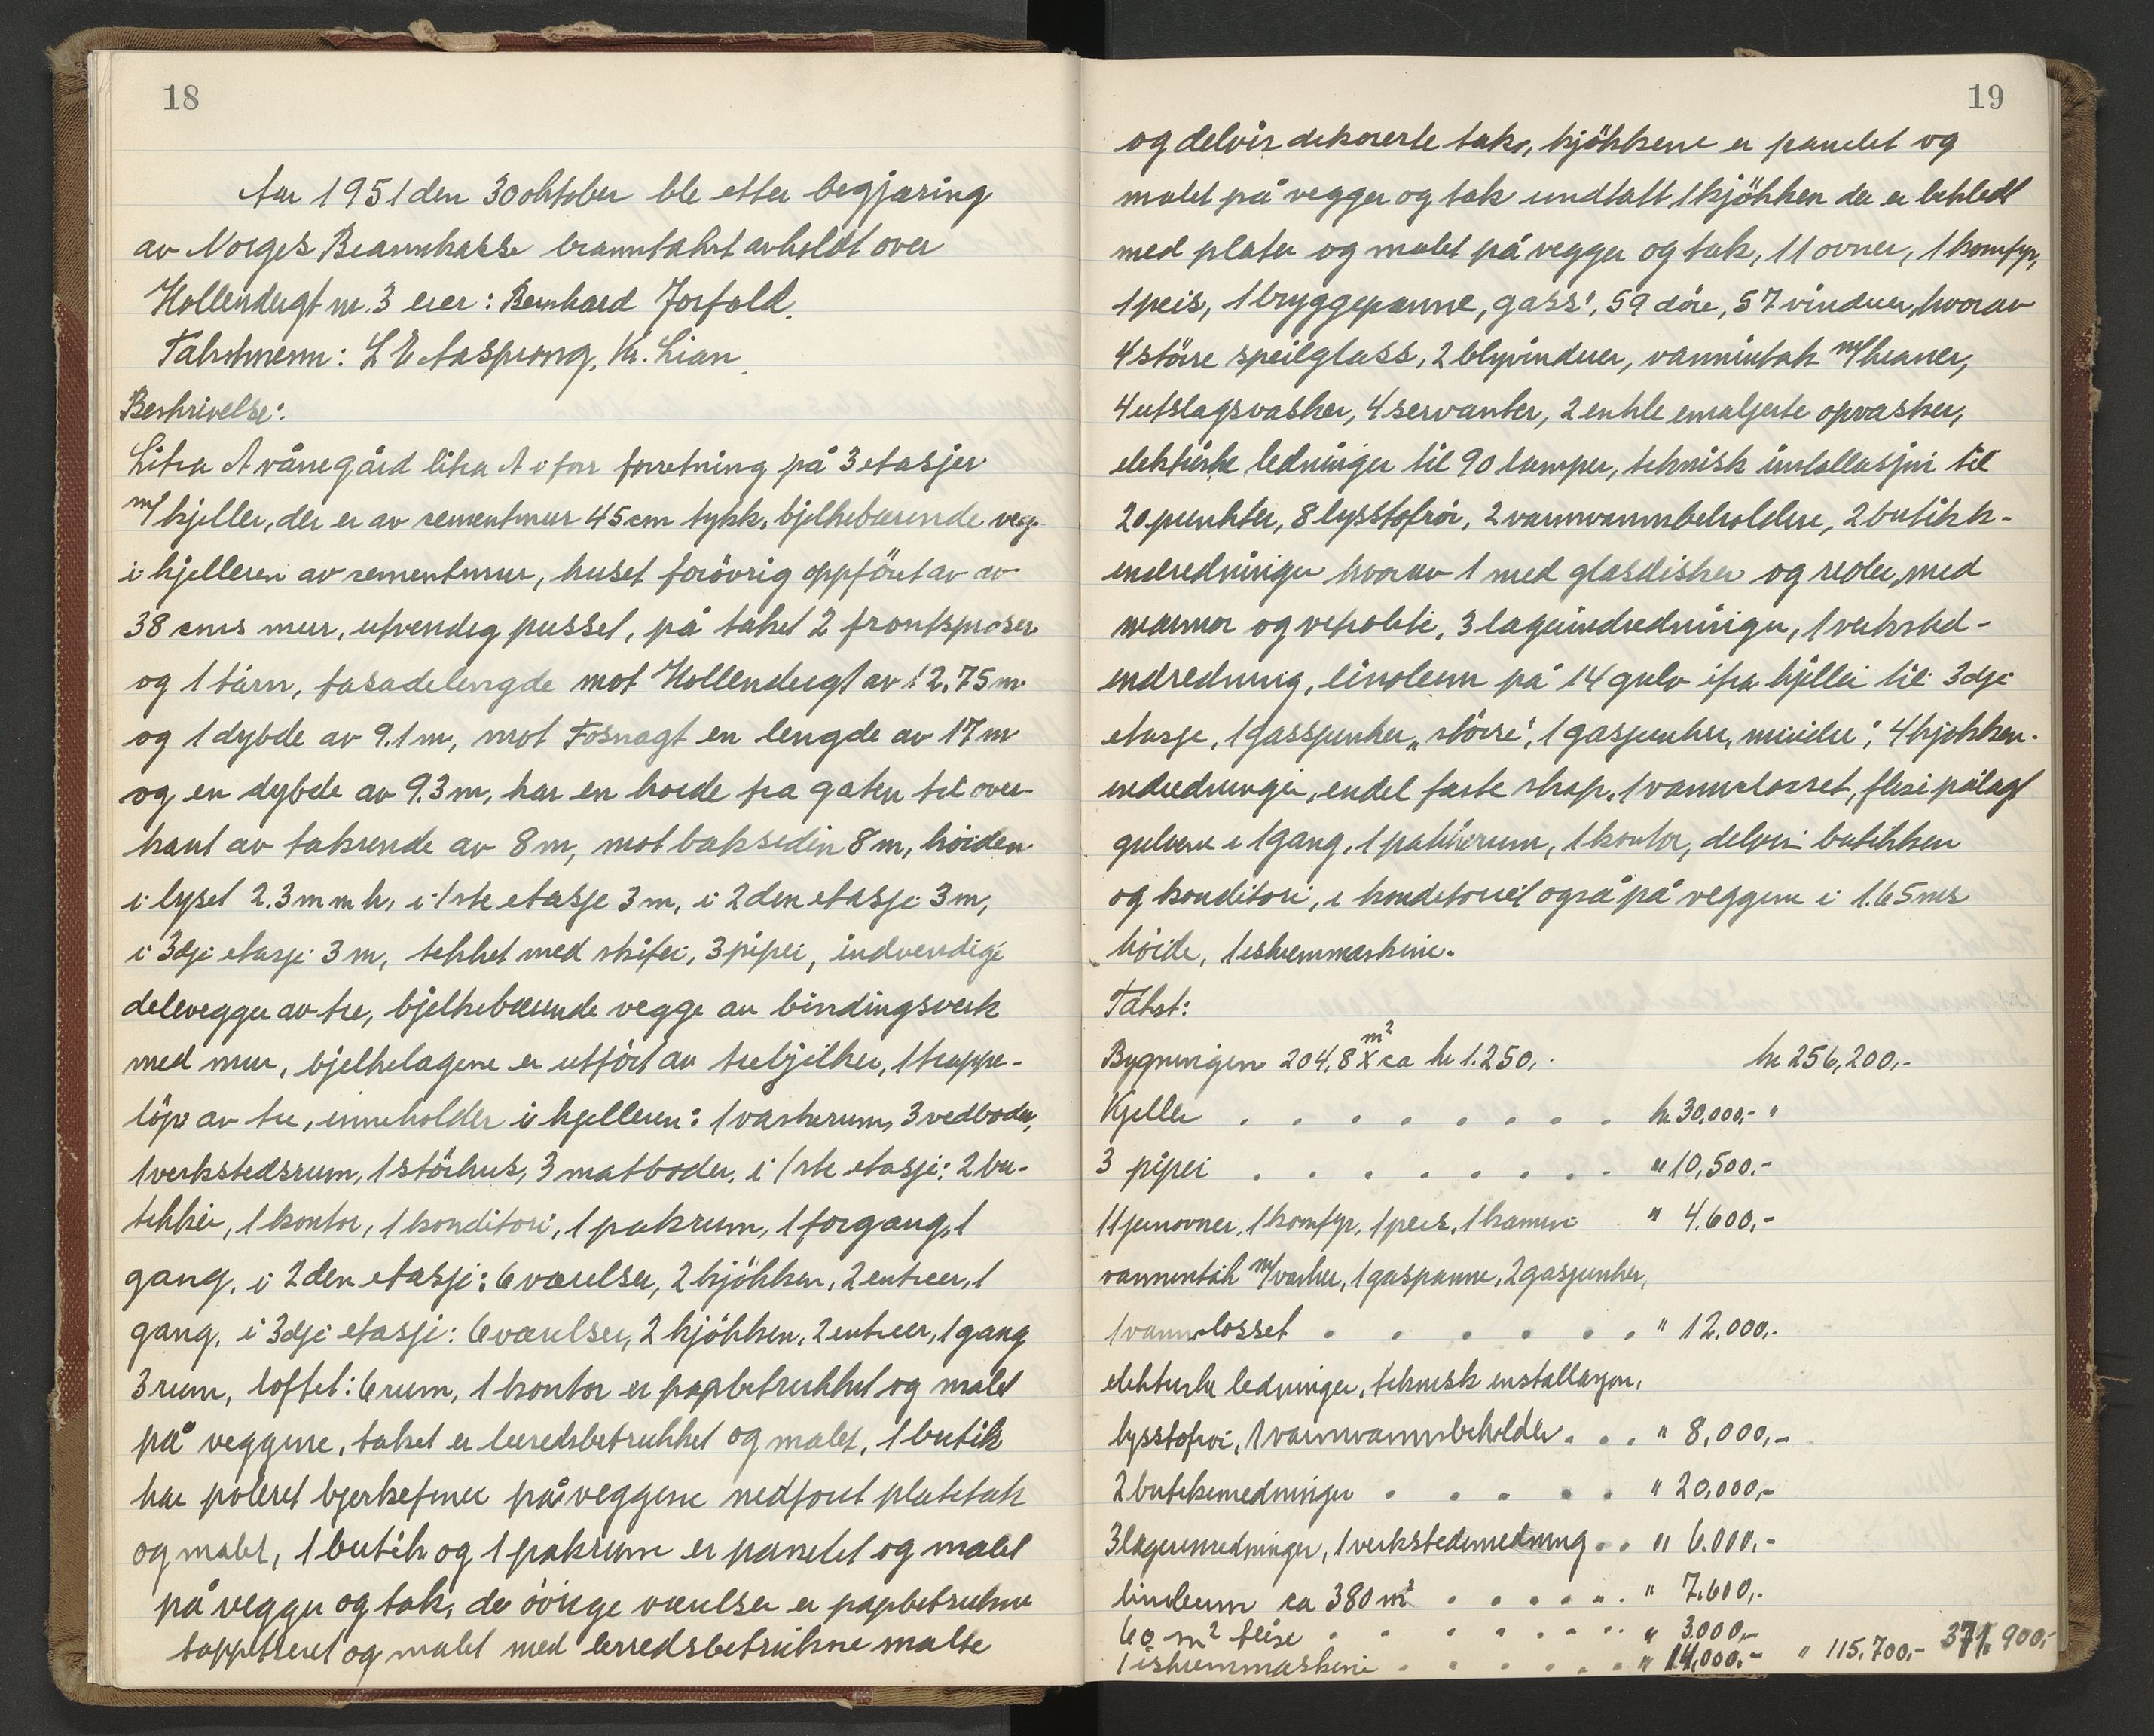 18
Aar 1951 den 30 oktober ble etter begjæring
av Norges Brannkasse branntakst avholdt over
Hollendergt nr. 3 eier: Bernhard Jorfald.
Takstmenn: L E Aasprong, Kr. Lian.
Beskrivelse:
Litra A vånegård litra A i for forretning på 3 etasjer
m/ kjeller, der er av sementmur 45 cm tykk, bjelkebærende vegg
i kjelleren av sementmur, huset forövrig oppföret av av
38 cms mur, utvendig pusset, på taket 2 frontspiser
og 1 tårn, fasadelengde mot Hollendergt av 12.75 m
og 1 dybde av 9.1 m, mot Fosnagt en lengde av 17 m
og en dybde av 9.3 m, har en höide fra gaten til over-
kant av takrende av 8 m, mot baksiden 8 m, höiden
i lyset 2.3 m m h, i 1ste etasje 3 m, i 2den etasje 3 m,
i 3dje etasje 3 m, tekket med skifer, 3 piper, indvendige
delevegger av tre, bjelkebærende vegge av bindingsverk
med mur, bjelkelagene er utfört av trebjelker, 1 trappe-
löp av tre, inneholder i kjelleren: 1 vaskerum, 3 vedboder,
1 verkstedsrum, 1 störhus, 3 matboder, i 1ste etasje: 2 bu-
tikker, 1 kontor, 1 konditori, 1 pakrum, 1 forgang, 1
gang, i 2den etasje: 6 værelser, 2 kjökken, 2 entreer, 1
gang, i 3dje etasje: 6 værelser, 2 kjökken, 2 entreer, 1 gang
3 rum, loftet: 6 rum, 1 kontor er papbetrukket og malet
på veggene, taket er lerredsbetrukket og malet, 1 butik
har poleret bjerkefiner på veggene nedforet platetak
og malet, 1 butik og 1 pakrum er panelet og malet
på vegger og tak, de övrige værelser er papbetrukne
tappetseret og malet med lerredsbetrukne malte
19
og delvis dekorerte tak, kjökkene er panelet og
malet på vegger og tak undtatt 1 kjökken der er bekledt
med plater og malet på vegger og tak, 11 ovner, 1 komfyr,
1 peis, 1 bryggepanne, "gass", 59 döre, 57 vinduer, hvorav
4 större speilglass, 2 blyvinduer, vanninntak m/ kraner,
4 utslagsvasker, 4 servanter, 2 enkle emaljerte opvasker,
elektriske ledninger til 90 lamper, teknisk installasjon til
20 punkter, 8 lysstofrör, 2 varmvannbeholdere, 2 butikk-
endredninger hvorav 1 med glasdisker og reoler, med
marmor og vetrolite, 3 lagerindredninger, 1 verksted-
endredning, linoleum på 14 gulv ifra kjeller til 3dje
etasje, 1 gassjunker "större", 1 gasjunker "mindre", 4 kjökken-
endredninger, endel faste skap, 1 vannclosset, fliser pålagt
gulvene i 1 gang, 1 pakkerum, 1 kontor, delvis butikken
og konditori, i konditoriet også på veggene i 1.65 ms
höide, 1 iskremmaskine.
Takst:
Bygningen 204,8 m² x ca kr 1.250,- kr 256,200,-
Kjeller . . . . . . . . kr 30.000,- "
3 piper . . . . . . . . " 10,500.-
11 jernovner, 1 komfyr, 1 peis, 1 kamin " 4.600,-
vanninntak m/ vasker, 1 gaspanne, 2 gasjunker,
1 vannclosset . . . . . . " 12.000,-
elektriske ledninger, teknisk installasjon,
lysstofrör, 1 varmvannbeholder . . . " 8,000,-
2 butikenredninger . . . . . " 20,000,-
3 lagerenredninger, 1 verkstedenredning . . " 6.000,-
linoleum ca 380 m² . . . . . . " 7.600,-
60 m² flise . . . . . . . " 3.000,-
1 iskremmaskine . . . . . . " 14,000.- " 115.700,- 371.900,-